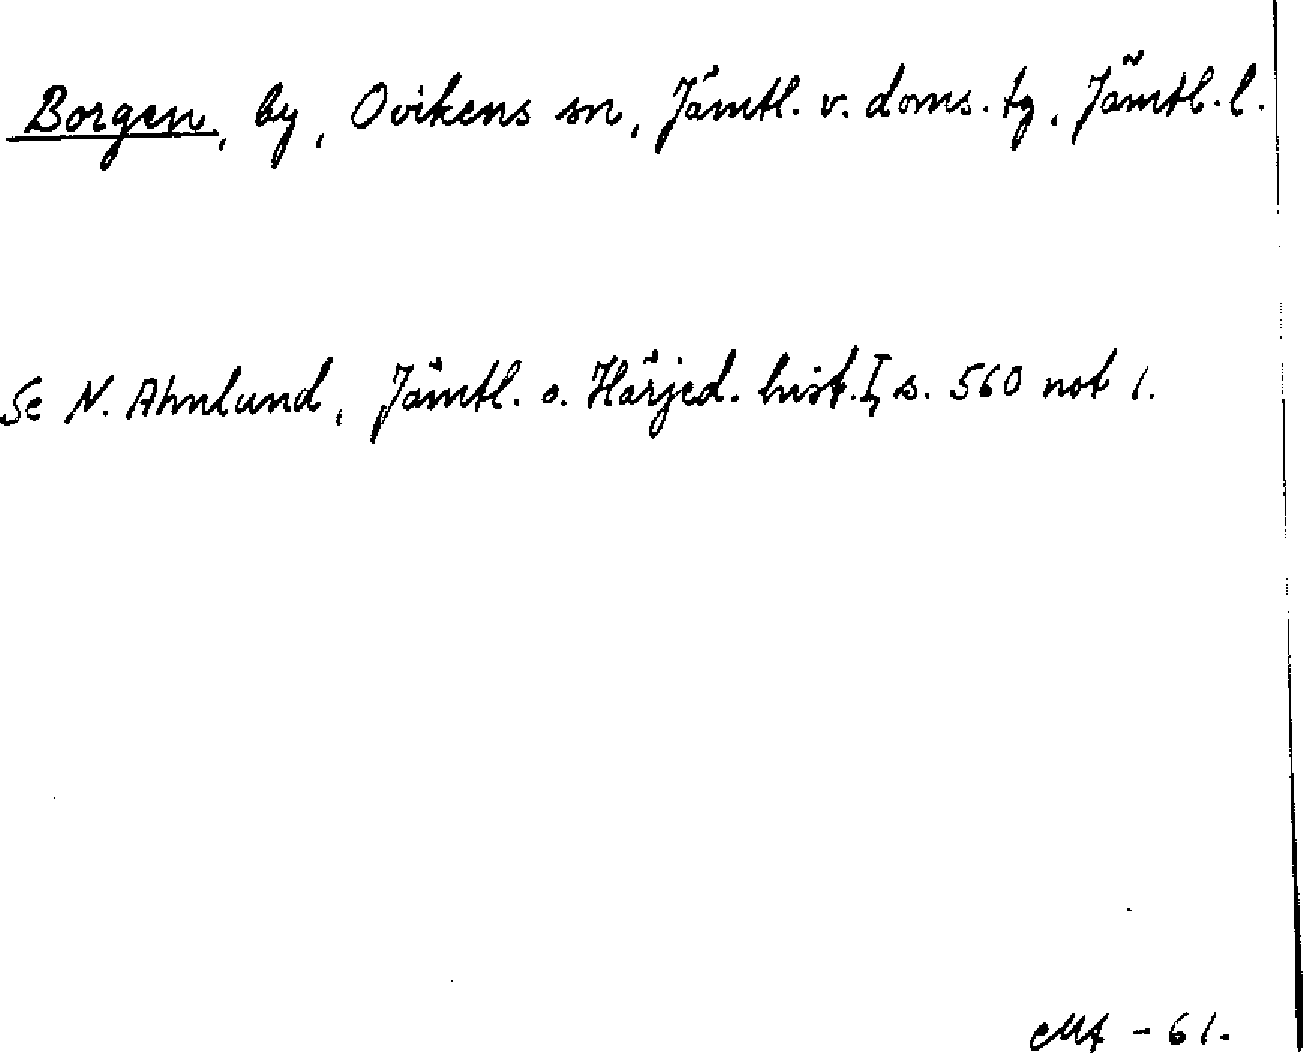 Borgen, by, Ovikens sn, Jämtl. v. doms. tg, Jämtl. l.
Se N. Ahnlund, Jämtl. o. Härjed. hist. I, s. 560 not 1.
- 61.